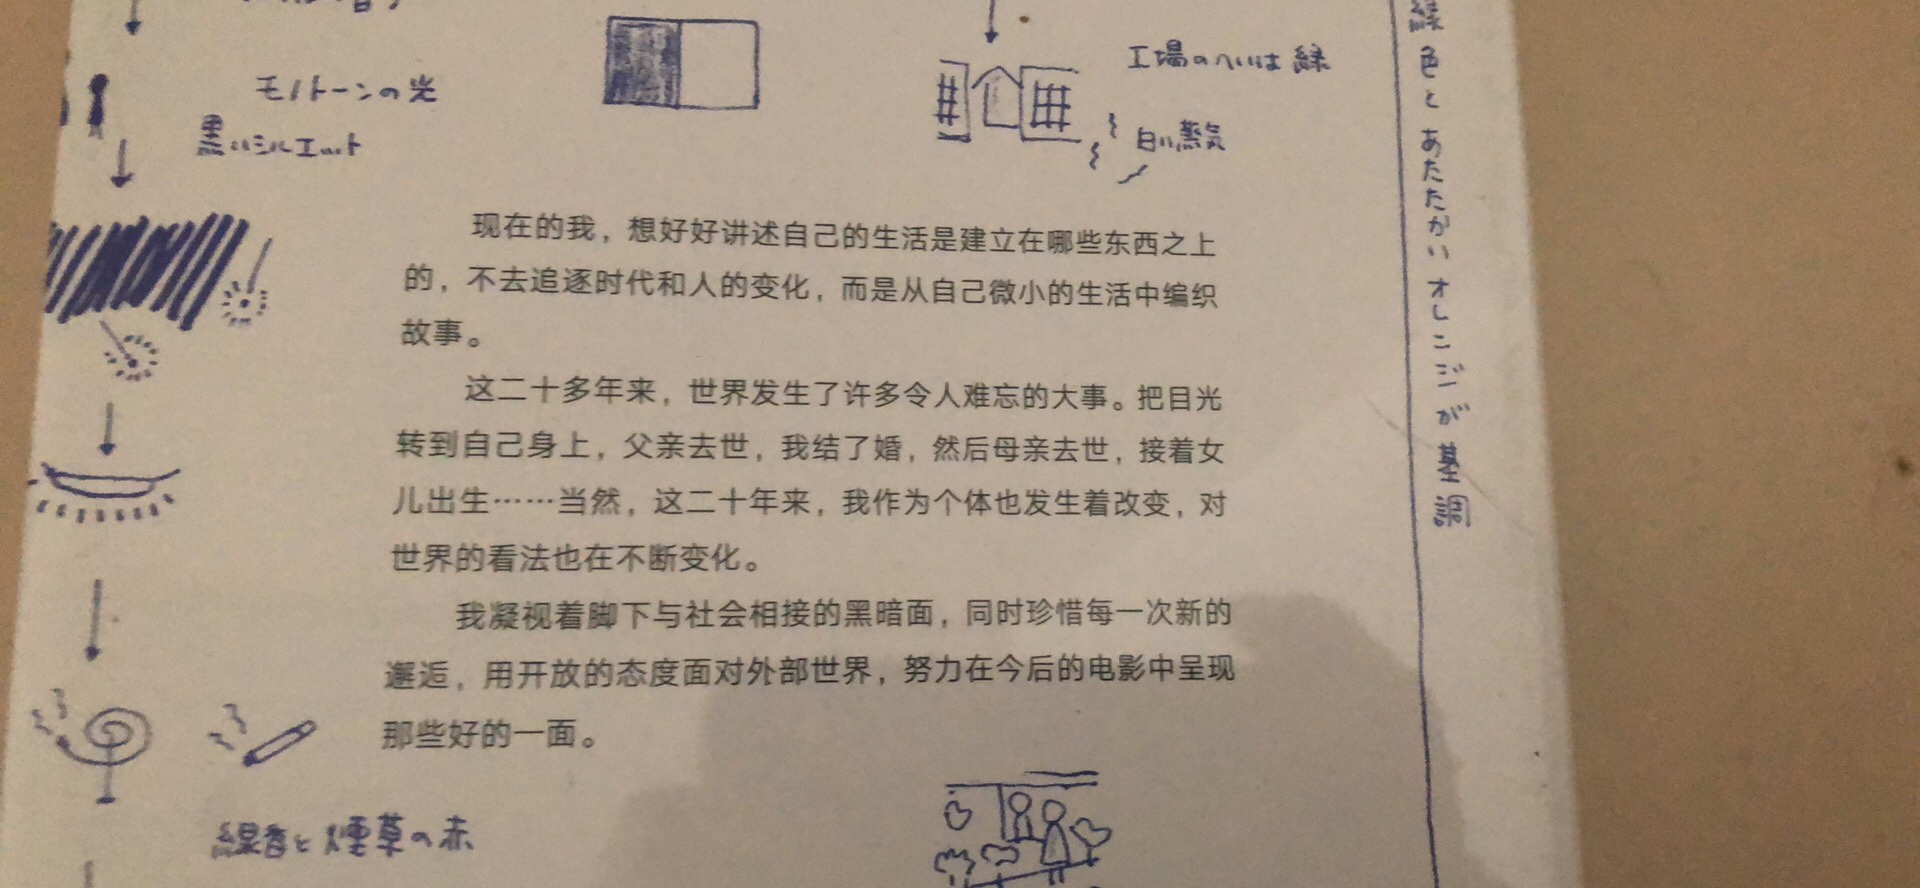 モノトーンの光
黒いシルエット
工場のへいは緑
白い蒸気
现在的我，想好好讲述自己的生活是建立在哪些东西之上
的，不去追逐时代和人的变化，而是从自己微小的生活中编织
故事。
这二十多年来，世界发生了许多令人难忘的大事。把目光
转到自己身上，父亲去世，我结了婚，然后母亲去世，接着女
儿出生……当然，这二十年来，我作为个体也发生着改变，对
世界的看法也在不断变化。
我凝视着脚下与社会相接的黑暗面，同时珍惜每一次新的
邂逅，用开放的态度面对外部世界，努力在今后的电影中呈现
那些好的一面。
線香と煙草の赤
緑色とあたたかいオレンジが基調